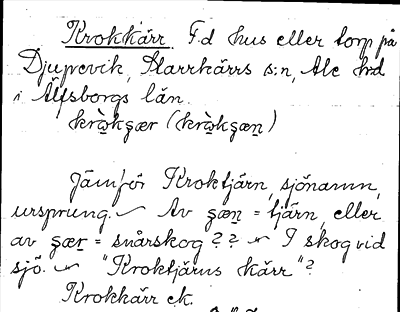 Krokkärr. F.d hus eller torp på
Djupevik, Starrkärrs s:n, Ale hd
i Älfsborgs län.
krò̱kʂær (krò̱kʂæn)
Jämför Kroktjärn, sjönamn,
ursprung. Av ʂæn = tjärn, eller
av ʂær = snårskog?? I skog vid
sjö. "Kroktjärns kärr"?
Krokkärr ek.